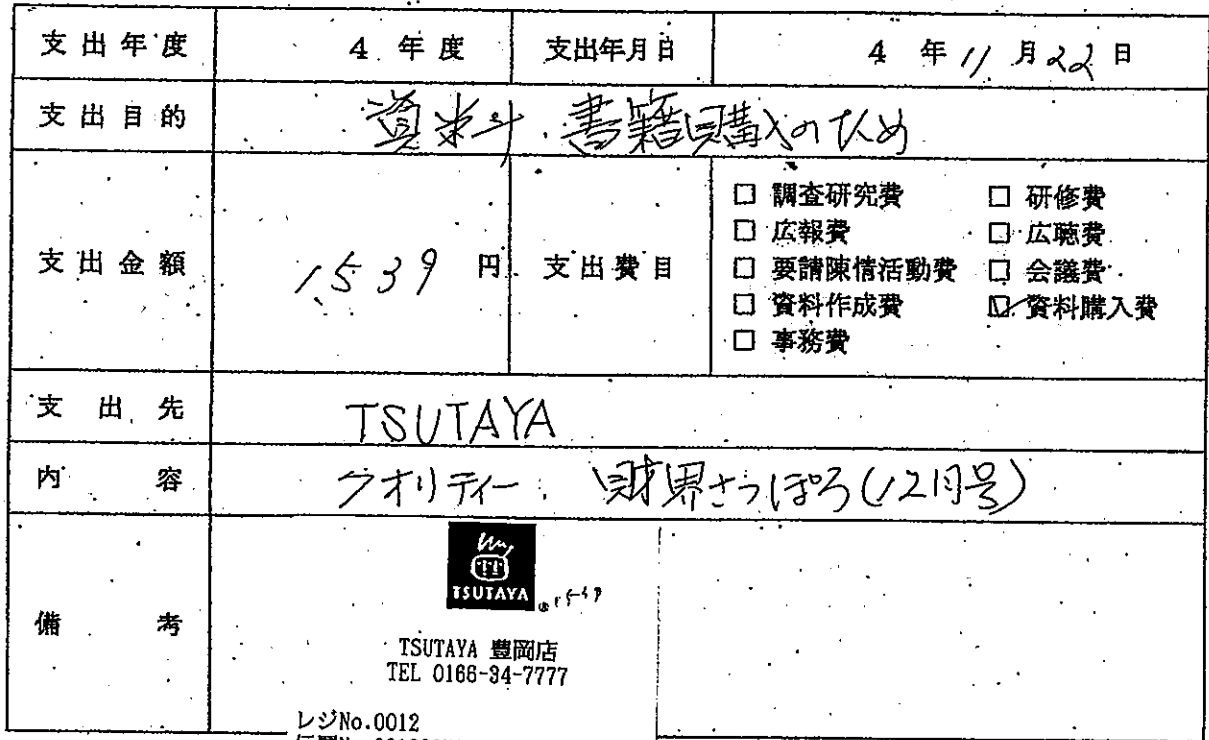 支出年度 4年度 支出年月日 4年11月22日
支出目的 資料、書籍購入のため
支出金額 1539円 支出費目
□ 調査研究費 □ 研修費
□ 広報費 □ 広聴費
□ 要請陳情活動費 □ 会議費
□ 資料作成費 ☑ 資料購入費
□ 事務費
支出先 TSUTAYA
内容 クオリティー、財界さっぽろ(12月号)
備考
TSUTAYA
1539
TSUTAYA 豊岡店
TEL 0166-34-7777
レジNo.0012